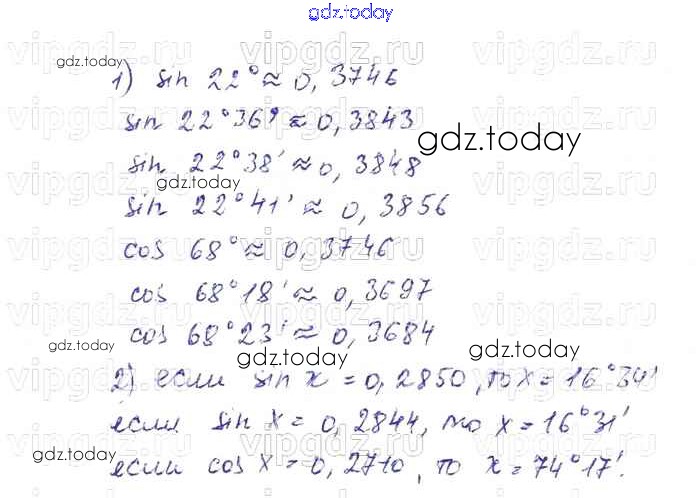 gdz.today
1) sin 22° ≈ 0,3746
sin 22°36' ≈ 0,3843
sin 22°38' ≈ 0,3848
sin 22°41' ≈ 0,3856
cos 68° ≈ 0,3746
cos 68°18' ≈ 0,3697
cos 68°23' ≈ 0,3684
2) если sin x = 0,2850, то x = 16°34'
если sin x = 0,2844, то x = 16°31'
если cos x = 0,2710, то x = 74°17'.
gdz.today
gdz.today
gdz.today
gdz.today
gdz.today
gdz.today
gdz.today
gdz.today
vipgdz.ru